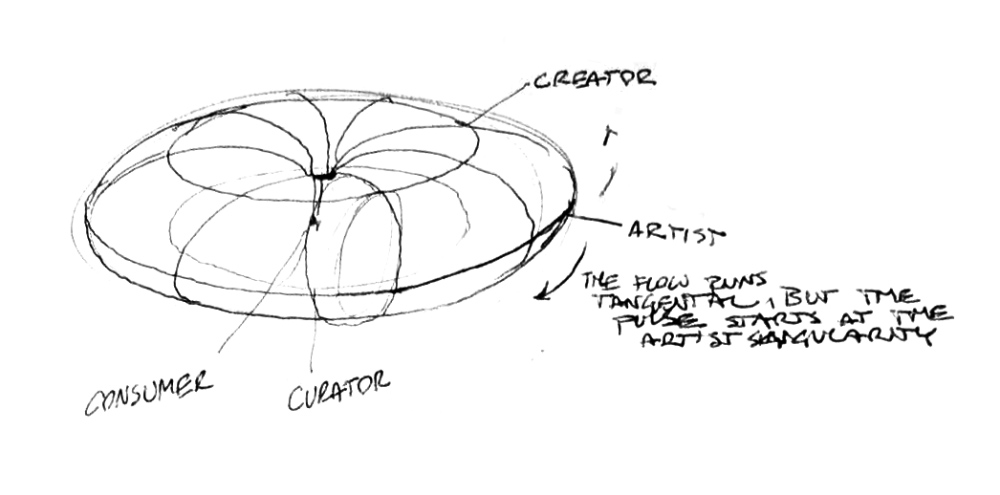 CREATOR
ARTIST
THE FLOW RUNS
TANGENTAL, BUT THE
PULSE STARTS AT THE
ARTIST SINGULARITY
CONSUMER
CURATOR